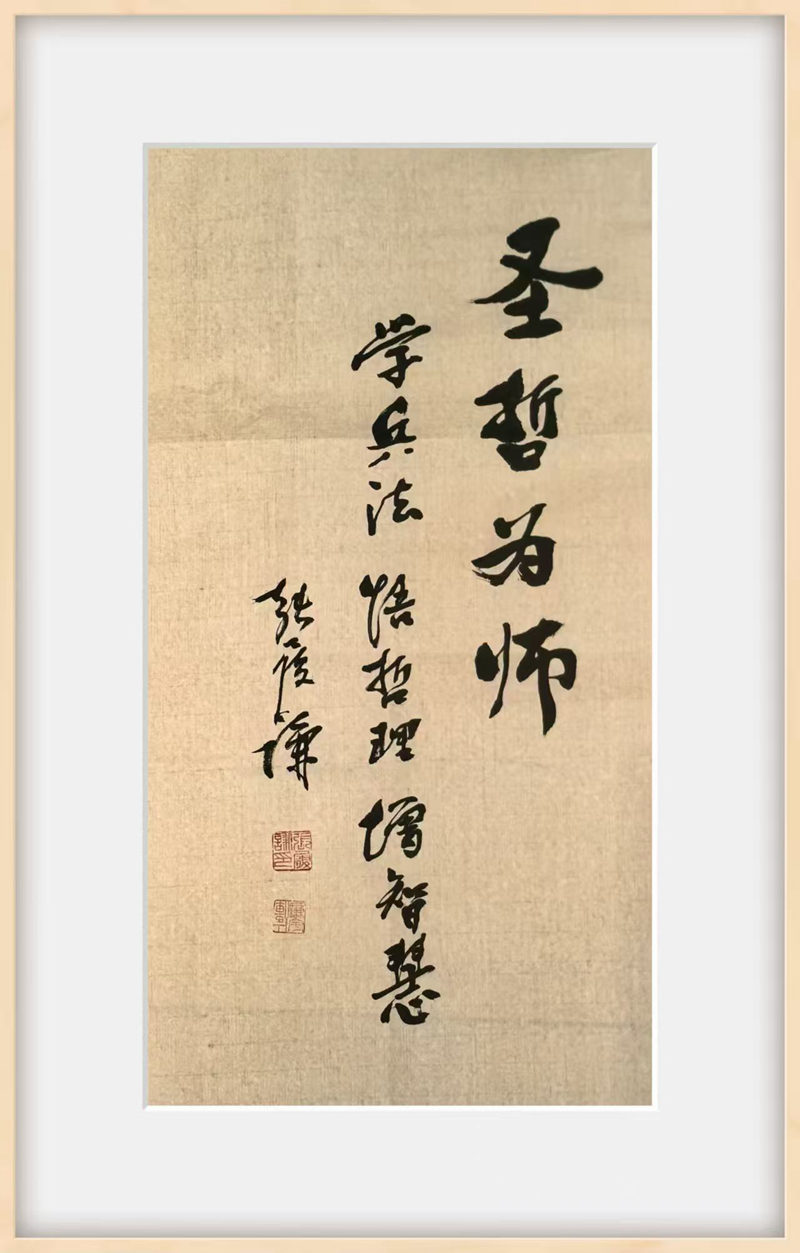 圣哲为师
学兵法 悟哲理 增智慧
张 谦